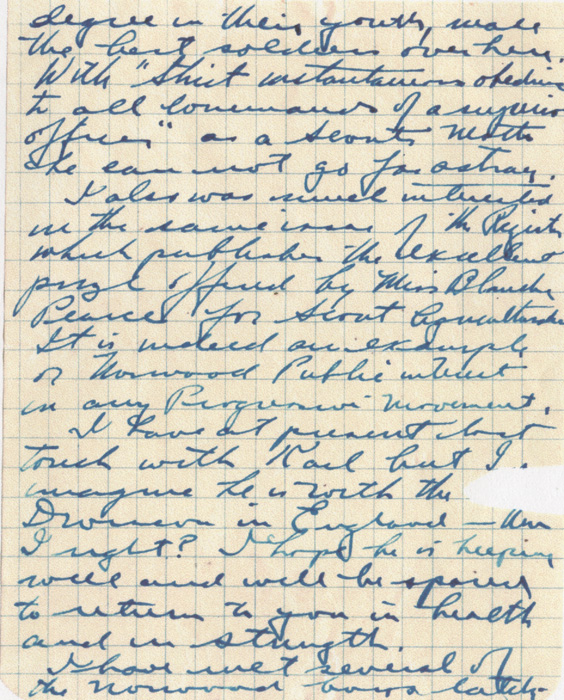 degree in their youth, make
the best soldiers over here.
With "Strict instantaneous obedience
to all commands of a superior
officer" as a Scouts Motto
he can not go far astray.
I also was much interested
in the same issue of the Register
which publishes the excellent
prize offered by Miss Blanche
Pearce for Scout Agriculturalist
It is indeed an example
of Norwood Public interest
in any Progressive movement.
I have at present lost
touch with Karl but I
imagine he is with the
Division in England — Am
I right? I hope he is keeping
well and will be spared
to return to you in health
and in strength.
I have met several of
the Norwood boys lately